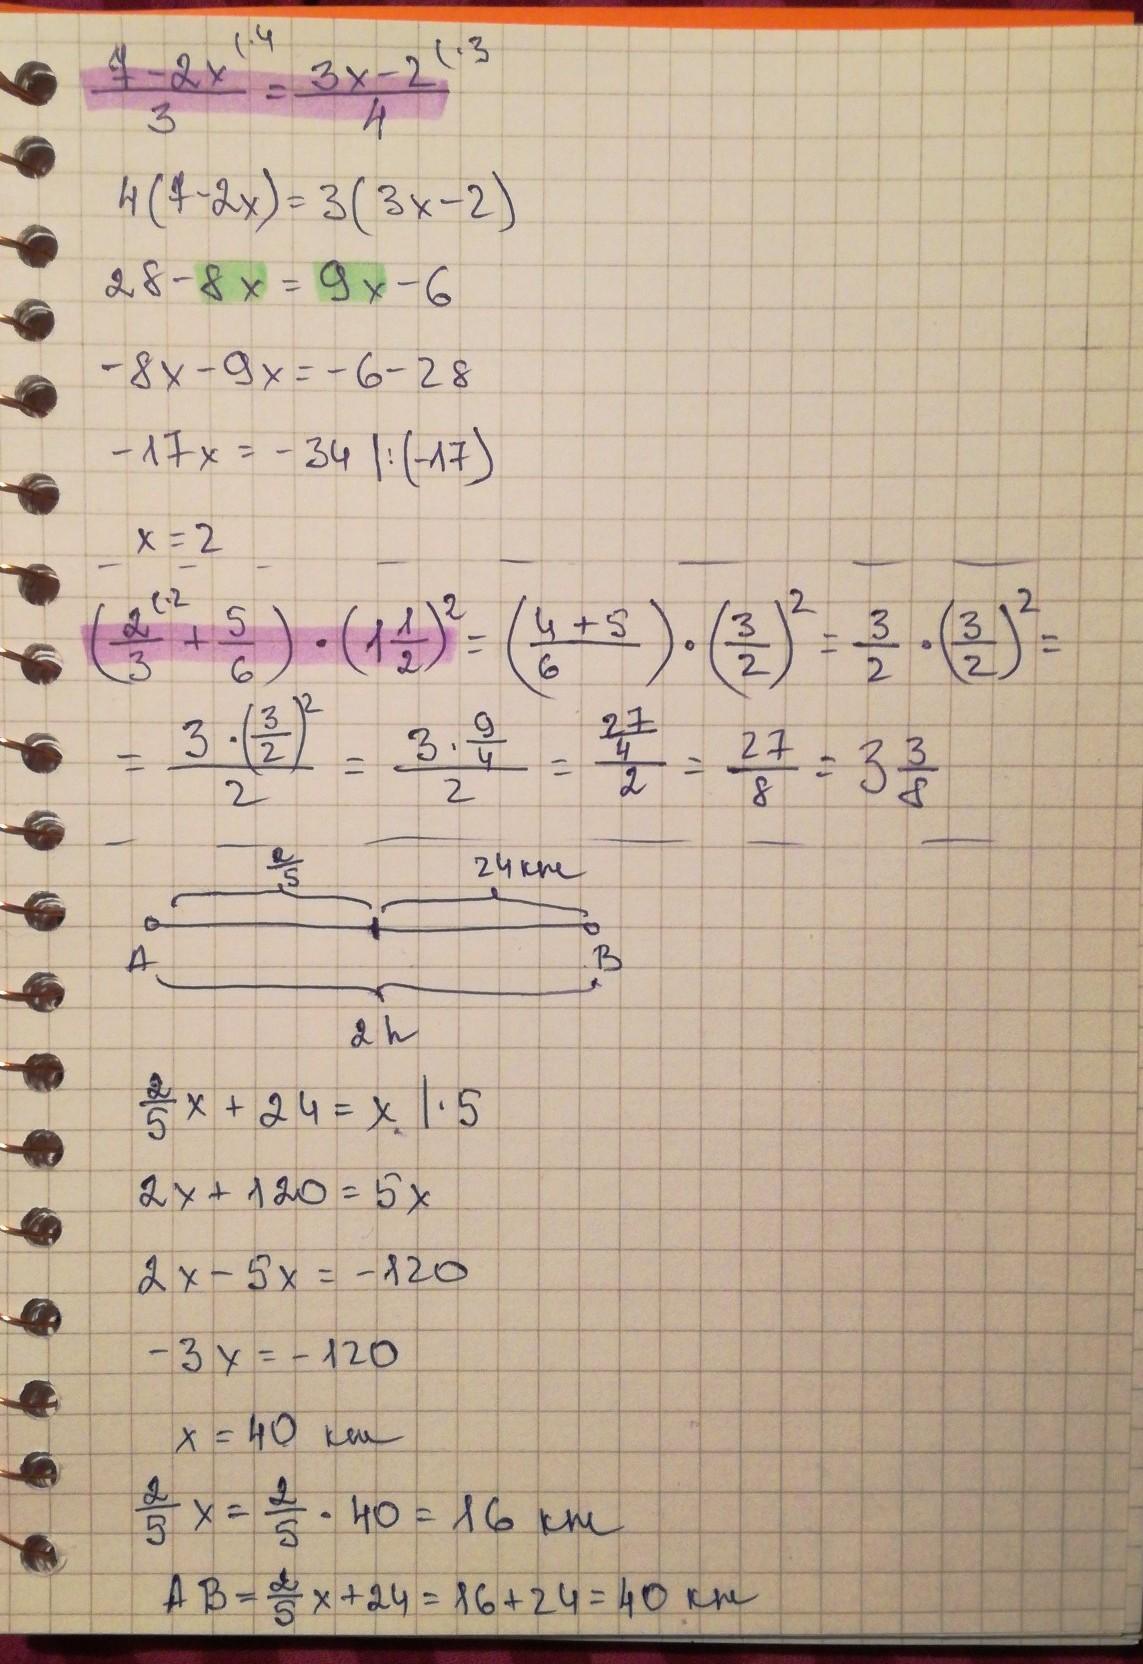 (7-2x)/3 (·4 = (3x-2)/4 (·3
4(7-2x)=3(3x-2)
28-8x=9x-6
-8x-9x=-6-28
-17x=-34 |:(-17)
x=2
(2/3 (·2 + 5/6)·(1 1/2)² = ((4+5)/6)·(3/2)² = 3/2·(3/2)² =
= (3·(3/2)²)/2 = (3·9/4)/2 = (27/4)/2 = 27/8 = 3 3/8
2/5 24 km
A B
2h
2/5 x + 24 = x |·5
2x+120=5x
2x-5x=-120
-3x=-120
x=40 km
2/5 x = 2/5·40=16 km
AB=2/5 x+24=16+24=40 km